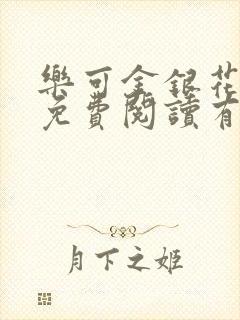 樂可金銀花
免費閱讀有
月下之姬